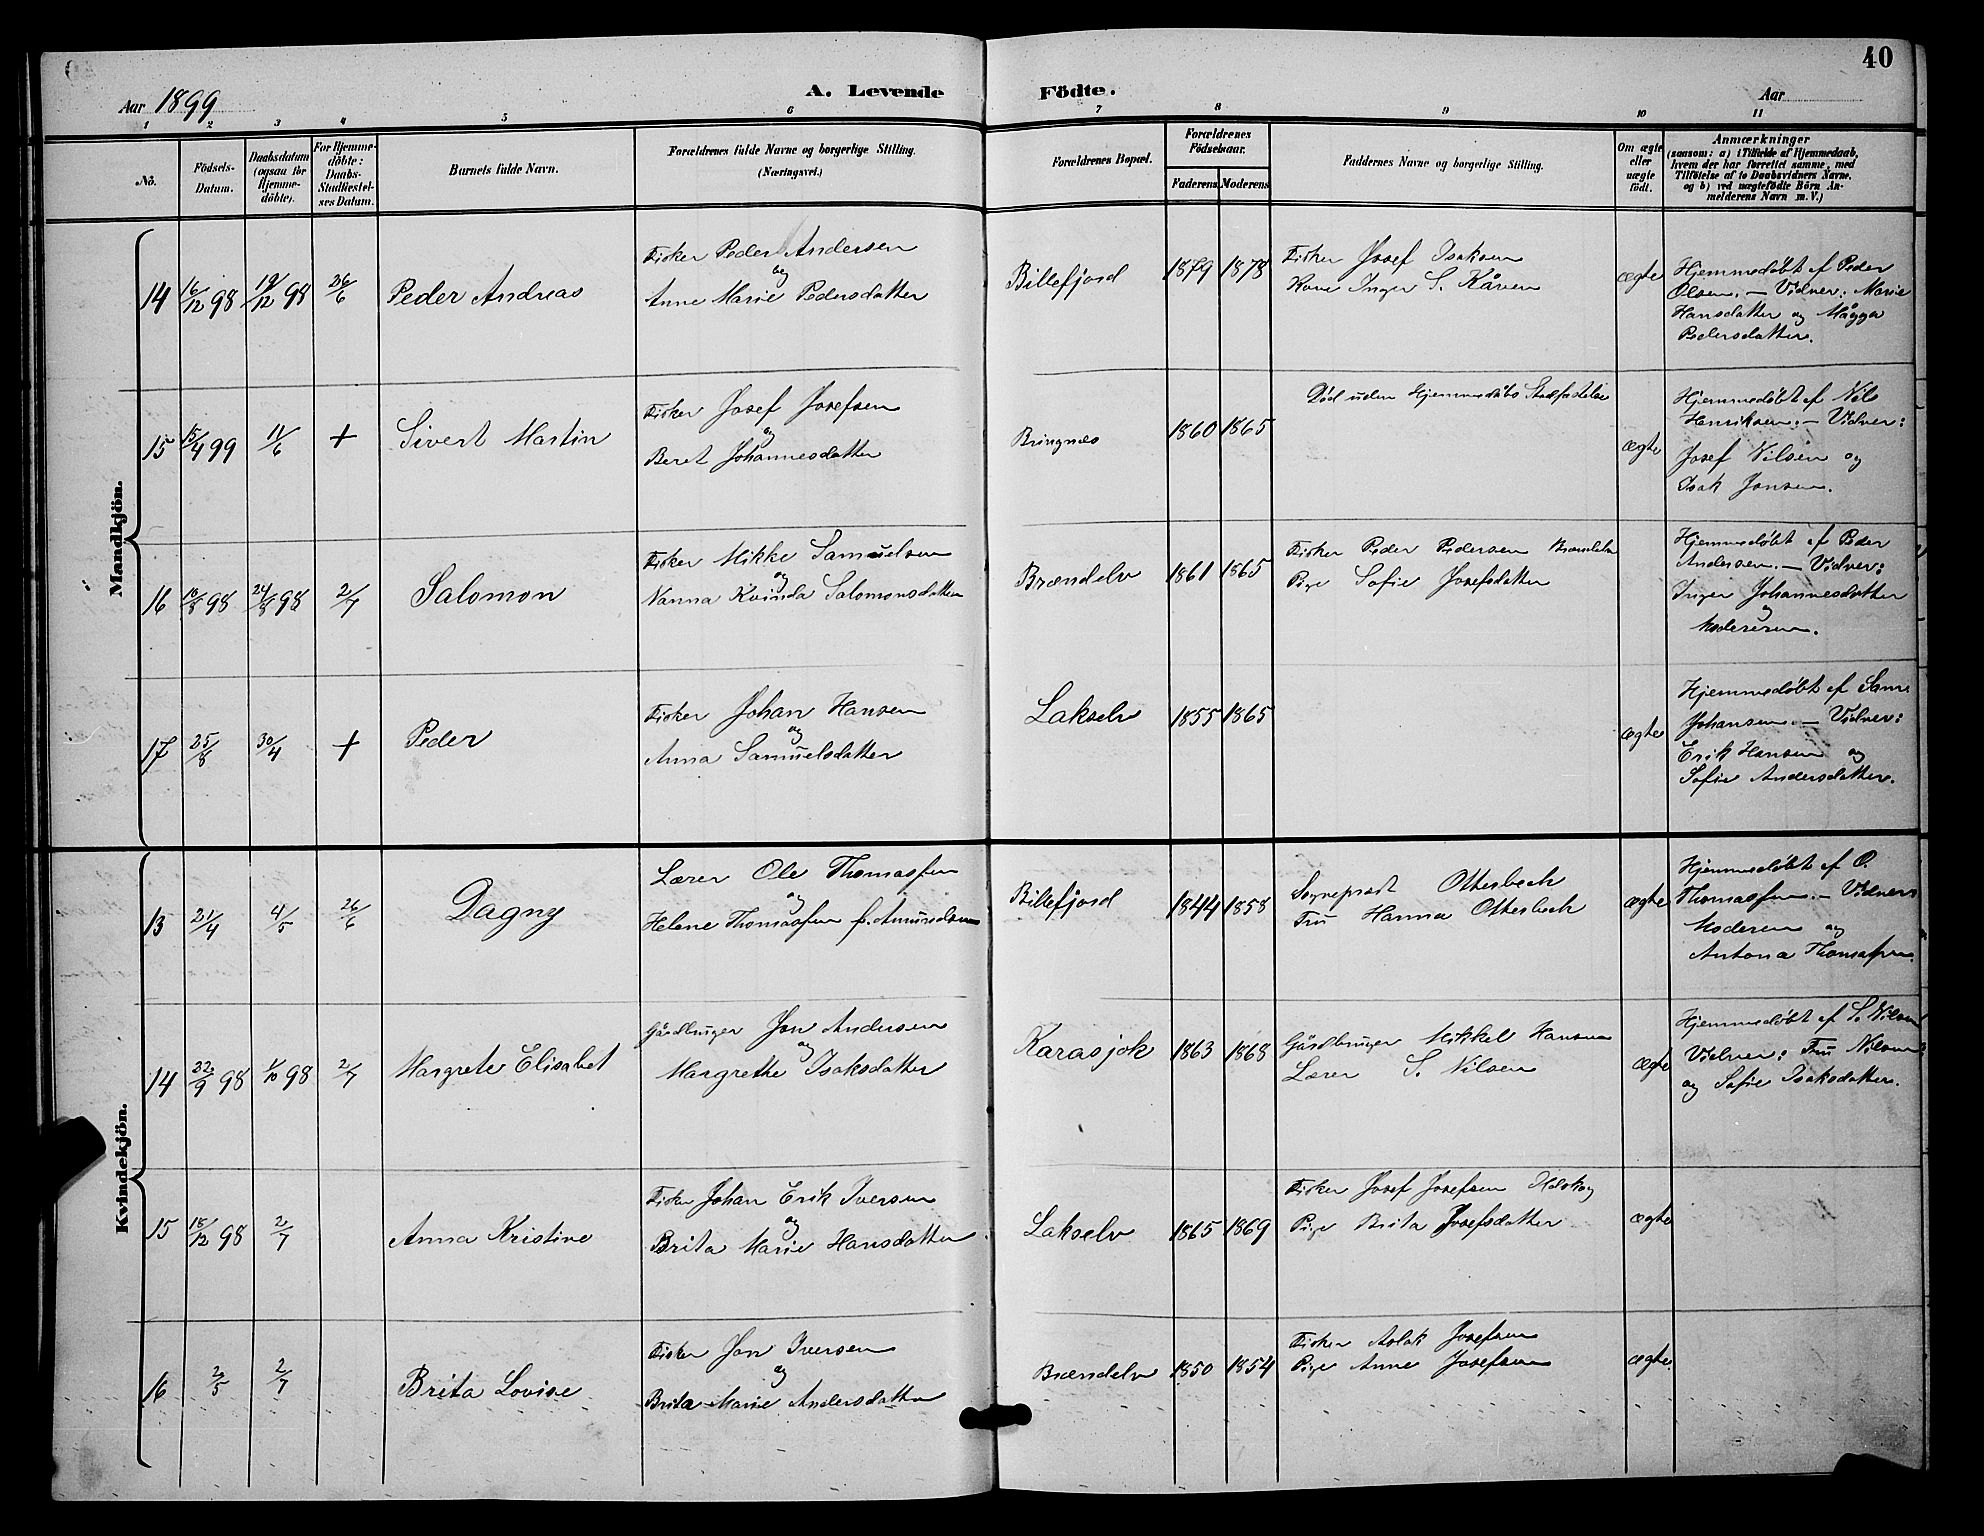 40
Aar 1899
A. Levende Födte.
Aar
1 2 3 4 5 6 7 8 9 10 11
No.
Födsels-Datum.
Daabsdatum (ogsaa for Hjemme-döbte).
For Hjemme-döbte: Daabs-Stadfæstel-ses Datum.
Barnets fulde Navn.
Forældrenes fulde Navne og borgerlige Stilling. (Næringsvei.)
Forældrenes Bopæl.
Forældrenes Födselsaar.
Faderens Moderens
Faddernes Navne og borgerlige Stilling.
Om ægte eller uægte födt.
Anmærkninger
(saasom: a) i Tilfælde af Hjemmedaab,
hvem der har forrettet samme, med
Tilföielse af to Daabsvidners Navne,
og b) ved uægtefödte Börn An-
melderens Navn m. V.)
Mandkjön.
14 16/12 98 19/12 98 26/6 Peder Andreas
Fisker Peder Andersen
og
Anne Marie Pedersdatter
Billefjord 1879 1878
Fisker Josef Isaksen
Kone Inger S. Kåven
ægte
Hjemmedøbt af Peder
Olsen. – Vidner: Marie
Hansdatter og Mågga
Pedersdatter.
15 15/4 99 11/6 + Sivert Martin
Fisker Josef Josefsen
og
Beret Johannesdatter
Bringnæs 1860 1865
Død uden Hjemmedøbs Stadfæstelse
ægte
Hjemmedøbt af Nils
Henriksen. – Vidner:
Josef Nilsen og
Isak Jonsen.
16 16/8 98 24/8 98 2/7 Salomon
Fisker Mikke Samuelsen
og
Nanna Kvinda Salomonsdatter
Brændelv 1861 1865
Fisker Peder Pedersen Brændelv
Pige Sofie Josefsdatter
Hjemmedøbt af Peder
Andersen. – Vidner:
Inger Johannesdatter
og
Moderen.
17 25/8 30/4 + Peder
Fisker Johan Hansen
og
Anna Samuelsdatter
Lakselv 1855 1865
ægte
Hjemmedøbt af Sam.
Johansen. – Vidner:
Erik Hansen og
Sofie Andersdatter.
Kvindekjön.
13 21/4 4/5 26/6 Dagny
Lærer Ole Thomassen
og
Helene Thomassen f. Amundsen
Billefjord 1844 1858
Sogneprest Otterbech
Fru Hanna Otterbech
ægte
Hjemmedøbt af O.
Thomassen. – Vidner:
Moderen og
Antona Thomassen.
14 22/9 98 1/10 98 2/7 Margrete Elisabet
Gårdbruger Jon Andersen
og
Margrethe Isaksdatter
Karasjok 1863 1868
Gårdbruger Mikkel Hansen
Lærer S. Nilsen
ægte
Hjemmedøbt af S. Nilsen
Vidner: Fru Nilsen
og Sofie Isaksdatter.
15 18/12 98 2/7 Anna Kristine
Fisker Johan Erik Iversen
og
Brita Marie Hansdatter
Lakselv 1865 1869
Fisker Josef Josefsen
Pige Brita Josefsdatter
ægte
16 2/5 2/7 Brita Lovise
Fisker Jon Iversen
og
Brita Marie Andersdatter
Brændelv 1850 1854
Fisker Aslak Josefsen
Pige Anne Josefsen
ægte